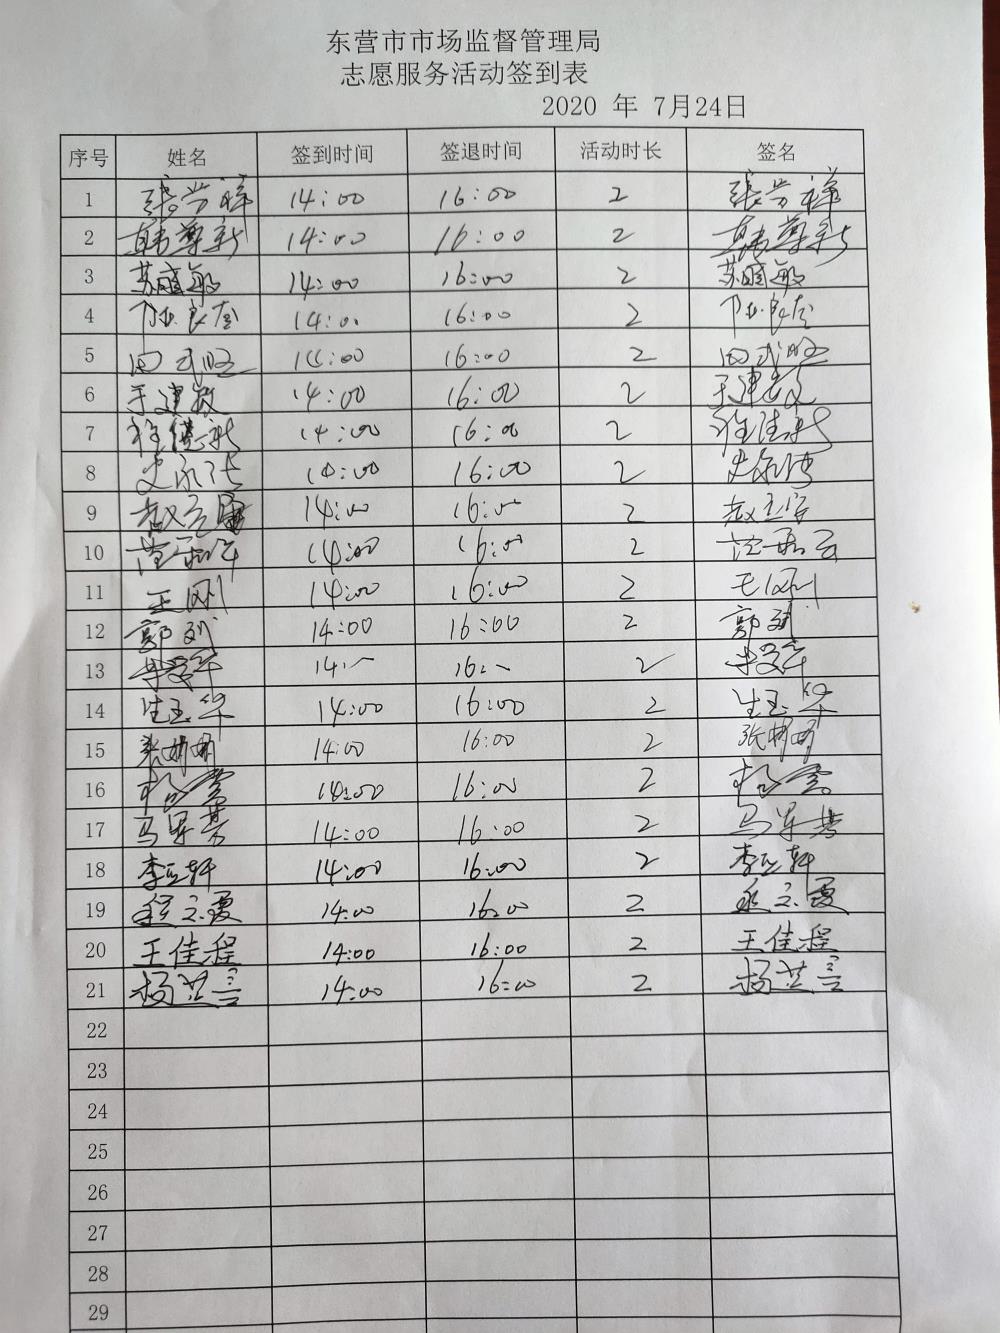 东营市市场监督管理局
志愿服务活动签到表
2020 年 7月24日
序号 姓名 签到时间 签退时间 活动时长 签名
1 张芳祥 14:00 16:00 2 张芳祥
2 韩尊新 14:00 16:00 2 韩尊新
3 苏敏 14:00 16:00 2 苏敏
4 14:00 16:00 2
5 田武 14:00 16:00 2 田武
6 于建 14:00 16:00 2 于建
7 新 14:00 16:00 2 新
8 史永 14:00 16:00 2 史永
9 赵 14:00 16:00 2 赵
10 范 14:00 16:00 2 范
11 王刚 14:00 16:00 2 王刚
12 郭 14:00 16:00 2 郭
13 14:~ 16:~ 2
14 生玉华 14:00 16:00 2 生玉华
15 张娟娟 14:00 16:00 2 张娟娟
16 杨雪 14:00 16:00 2 杨雪
17 马军芳 14:00 16:00 2 马军芳
18 李轩 14:00 16:00 2 李轩
19 程立霞 14:00 16:00 2 程立霞
20 王佳程 14:00 16:00 2 王佳程
21 杨兰言 14:00 16:00 2 杨兰言
22
23
24
25
26
27
28
29